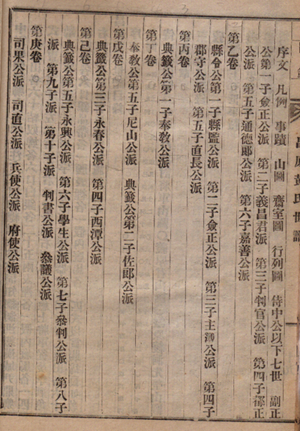 昌原黃氏世譜
序文 凡例 事蹟 山圖 齋室圖 行列圖 侍中公以下七世 副正
公第一子僉正公派 第二子義昌君派 第三子判官公派 第四子部正
公派 第五子通德郎公派 第六子嘉善公派
第乙卷
縣令公第一子縣監公派 第二子僉正公派 第三子主簿公派 第四子
郡守公派 第五子直長公派
第丙卷
典籤公第一子奉教公派
第丁卷
奉教公第五子尼山公派 典籤公第二子佐郎公派
第戊卷
典籤公第三子永春公派 第四子西潭公派
第己卷
典籤公第五子永興公派 第六子學生公派 第七子參判公派 第八子
派 第九子派 第十子派 判書公派 參議公派
第庚卷
司果公派 司直公派 兵使公派 府使公派